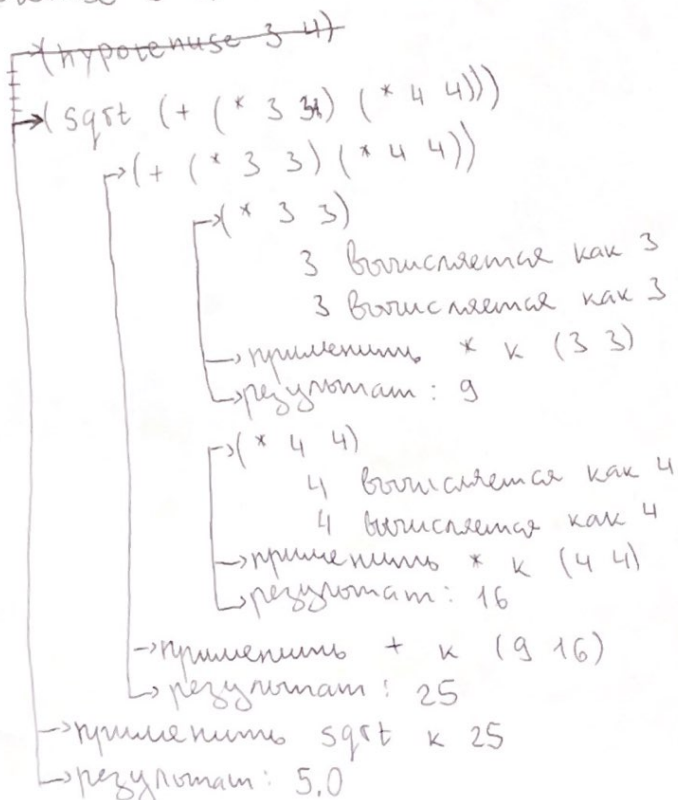 (hypotenuse 3 4)
(sqrt (+ (* 3 3) (* 4 4)))
(+ (* 3 3) (* 4 4))
(* 3 3)
3 вычисляется как 3
3 вычисляется как 3
применить * к (3 3)
результат: 9
(* 4 4)
4 вычисляется как 4
4 вычисляется как 4
применить * к (4 4)
результат: 16
применить + к (9 16)
результат: 25
применить sqrt к 25
результат: 5,0